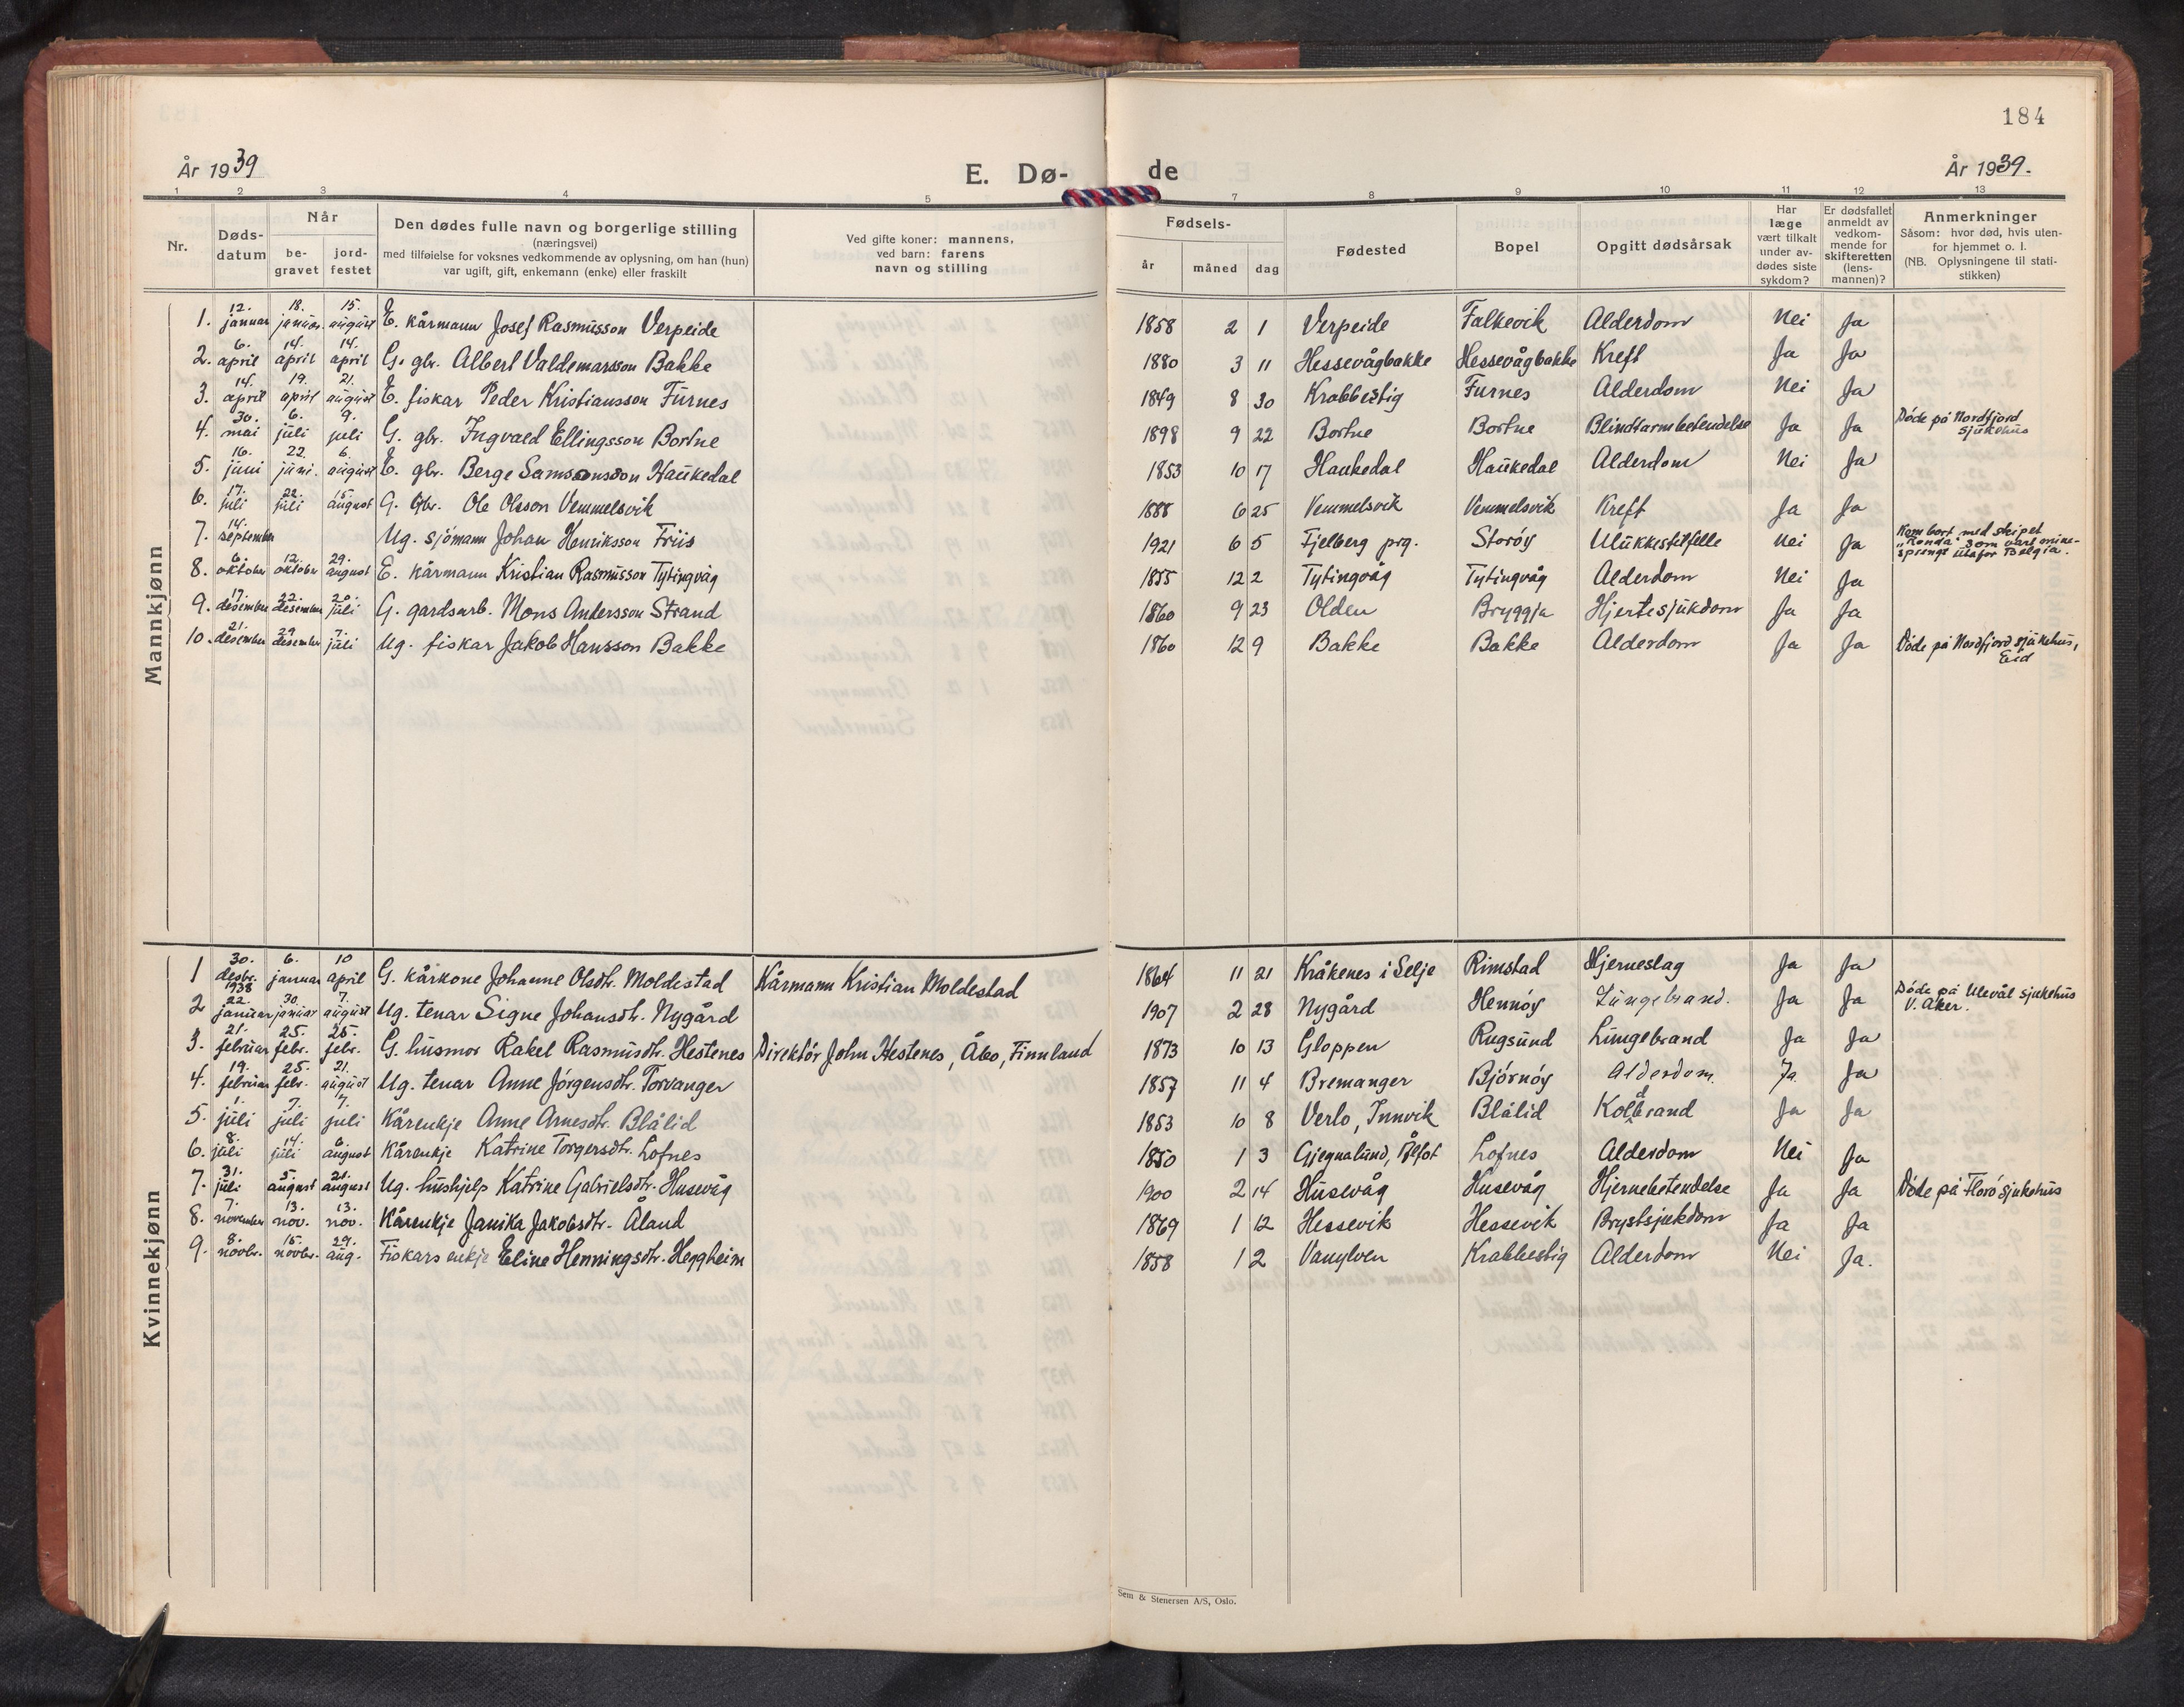 184
År 1939
E. Dø-
de
År 1939.
1 2 3 4 5 7 8 9 10 11 12 13
Nr.
Døds-
datum
Når
be-
gravet
jord-
festet
Den dødes fulle navn og borgerlige stilling
(næringsvei)
med tilføielse for voksnes vedkommende av oplysning, om han (hun)
var ugift, gift, enkemann (enke) eller fraskilt
Ved gifte koner: mannens,
ved barn: farens
navn og stilling
Fødsels-
år måned dag
Fødested
Bopel
Opgitt dødsårsak
Har
læge
vært tilkalt
under av-
dødes siste
sykdom?
Er dødsfallet
anmeldt av
vedkom-
mende for
skifteretten
(lens-
mannen)?
Anmerkninger
Såsom: hvor død, hvis uten-
for hjemmet o. l.
(NB. Oplysningene til stati-
stikken)
Mannkjønn
1. 12. januar 18. januar 15. august E. kårmann Josef Rasmusson Verpeide 1858 2 1 Verpeide Falkevik Alderdom Nei Ja
2. 6. april 14. april 14. april G. gbr. Albert Valdemarsson Bakke 1880 3 11 Hessevågbakke Hessevågbakke Kreft Ja Ja
3. 14. april 19. april 21. august E. fiskar Peder Kristiansson Furnes 1849 8 30 Krabbestig Furnes Alderdom Nei Ja
4. 30. mai 6. juli 9. juli G. gbr. Ingvald Ellingsson Bortne 1898 9 22 Bortne Bortne Blindtarmbetendelse Ja Ja Døde på Nordfjord sjukehus
5. 16. juni 22. juni. 6. august E. gbr. Berge Samsonsson Haukedal 1853 10 17 Haukedal Haukedal Alderdom Nei Ja
6. 17. juli 22. juli 15. august G. Gbr. Ole Olsson Vemmelsvik 1888 6 25 Vemmelsvik Vemmelsvik Kreft Ja Ja
7. 14. september Ug. sjømann Johan Henriksson Friis 1921 6 5 Fjelberg prg. Storøy Ulukkestilfelle Nei Ja Kom bort med skipet "Ronda" som vart mine-sprengt utafor Belgia.
8. 6. oktober 12. oktober 29. august E. kårmann Kristian Rasmusson Tytingvåg 1855 12 2 Tytingvåg Tytingvåg Alderdom Nei Ja
9. 17. desember 22. desember 20. juli G. gardsarb. Mons Andersson Strand 1860 9 23 Olden Bryggja Hjertesjukdom Ja Ja
10. 21. desember 29. desember 7. juli Ug. fiskar Jakob Hansson Bakke 1860 12 9 Bakke Bakke Alderdom Ja Ja Døde på Nordfjord sjukehus, Eid
Kvinnekjønn
1 30. desbr. 1938 6. januar 10 april G. kårkone Johanne Olsdtr. Moldestad Kårmann Kristian Moldestad 1864 11 21 Kråkenes i Selje Rimstad Hjerneslag Ja Ja
2 22. januar 30. januar 7. august Ug. tenar Signe Johansdt. Nygård 1907 2 28 Nygård Hennøy Lungebrand. Ja Ja Døde på Ulevål sjukehus V. Aker.
3. 21. februar 25. febr. 25. febr. G. husmor Rakel Rasmusdtr. Hestenes Direktør John Hestenes, Åbo, Finnland 1873 10 13 Gloppen Rugsund Lungebrand Ja Ja
4. 19. februar 25. febr. 21. august Ug. tenar Anne Jørgensdtr. Torvanger 1857 11 4 Bremanger Bjørnøy Alderdom. Ja Ja
5. 1. juli 7. juli 7. juli Kårenkje Anne Arnesdtr. Blålid 1853 10 8 Verlo, Innvik Blålid Koldbrand Ja Ja
6. 8. juli 14. juli 6. august Kårenkje Katrine Torgersdtr. Lofnes 1850 1 3 Gjegnalund, Ålfot Lofnes Alderdom Nei Ja
7. 31. juli 5. august 21. august Ug. hushjelp Katrine Gabrielsdtr. Husevåg 1900 2 14 Husevåg Husevåg Hjernebetendelse Ja Ja Døde på Florø sjukehus
8. 7. november 13. nov. 13. nov. Kårenkje Janika Jakobsdtr. Åland 1869 1 12 Hessevik Hessevik Brystsjukdom Ja Ja
9. 8. novbr. 15. novbr. 29. aug. Fiskars enkje Eline Henningsdtr. Heggheim 1858 1 2 Vanylven Krabbestig Alderdom Nei Ja.
Sem & Stenersen A/S, Oslo.